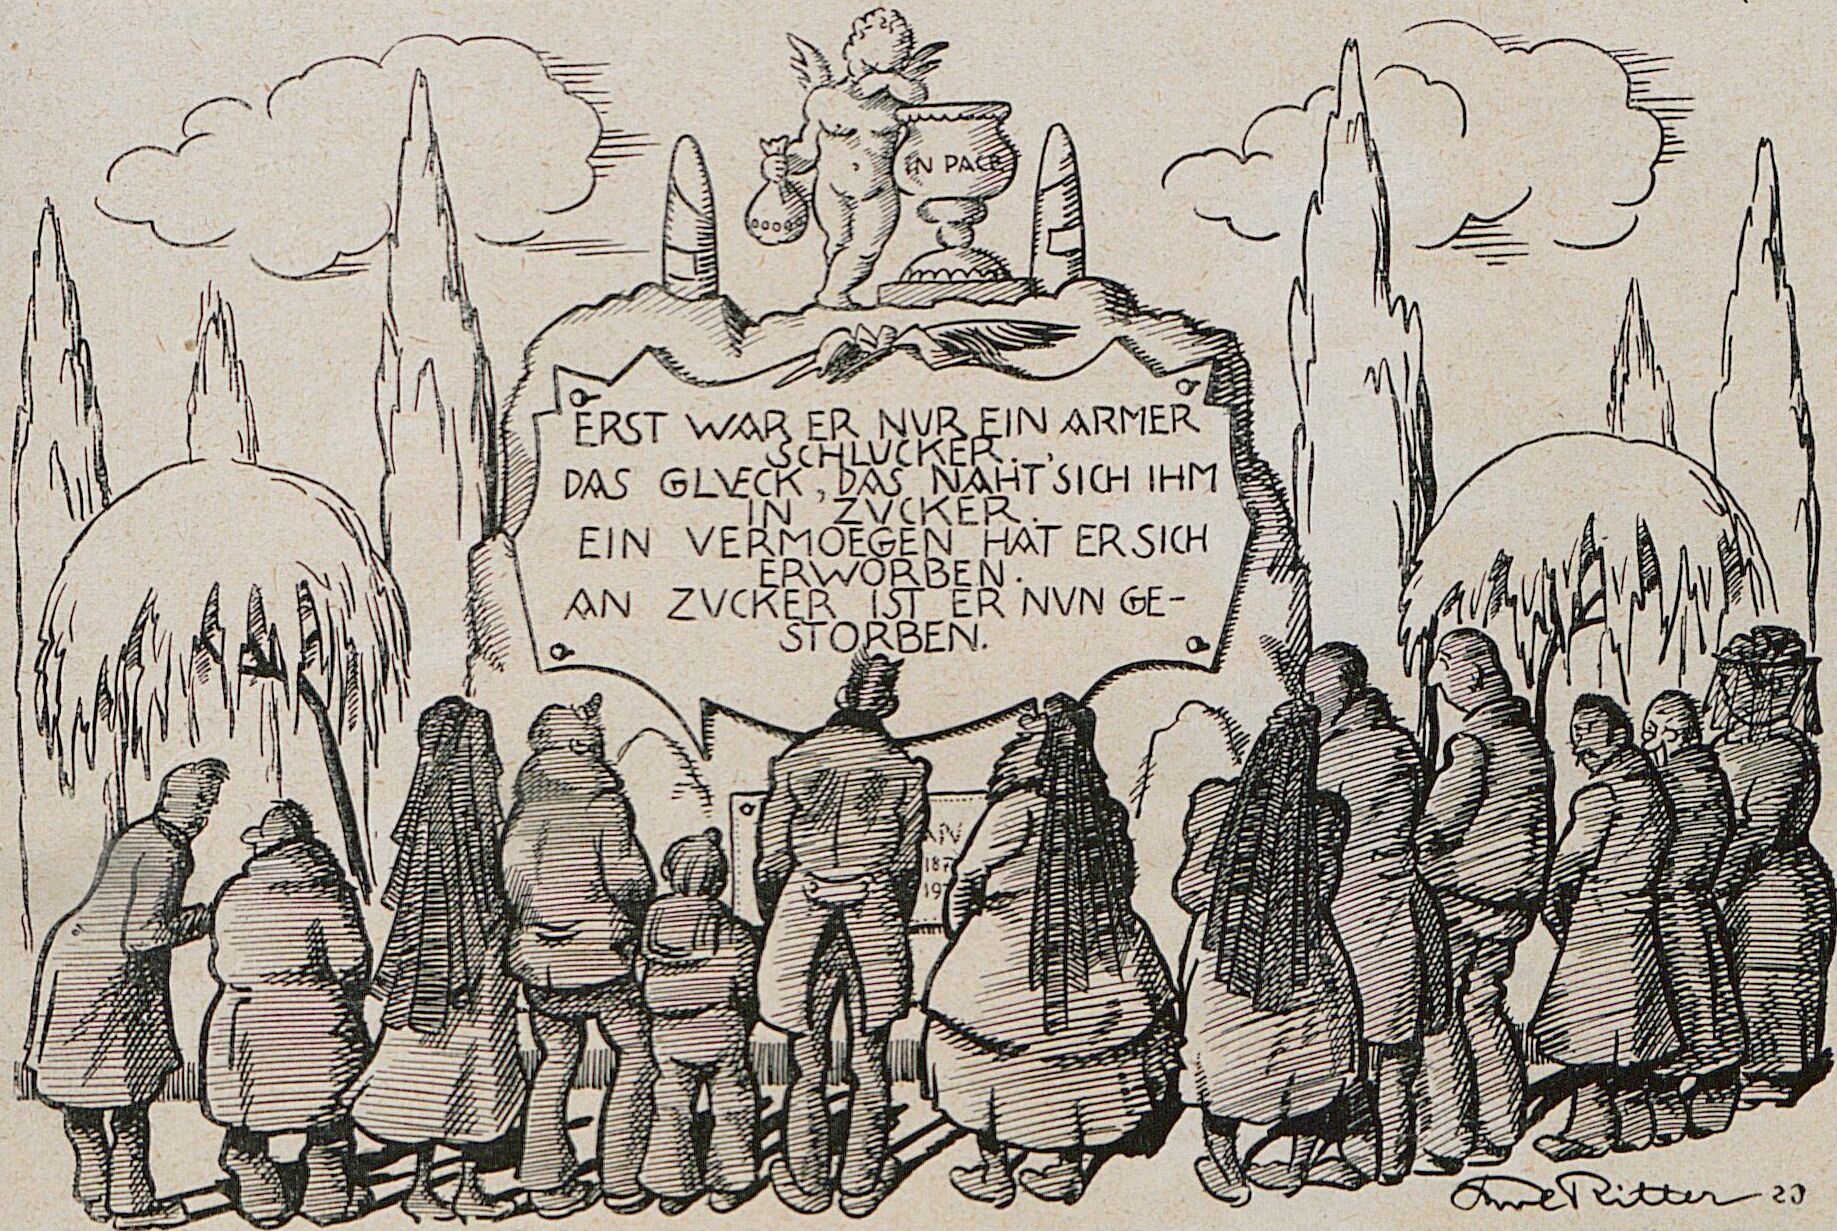 IN PACE
ERST WAR ER NUR EIN ARMER
SCHLUCKER.
DAS GLVECK, DAS NAHT'SICH IHM
IN ZVCKER.
EIN VERMOEGEN HAT ER SICH
ERWORBEN.
AN ZVCKER IST ER NVN GE-
STORBEN.
187
19
Ritter 20